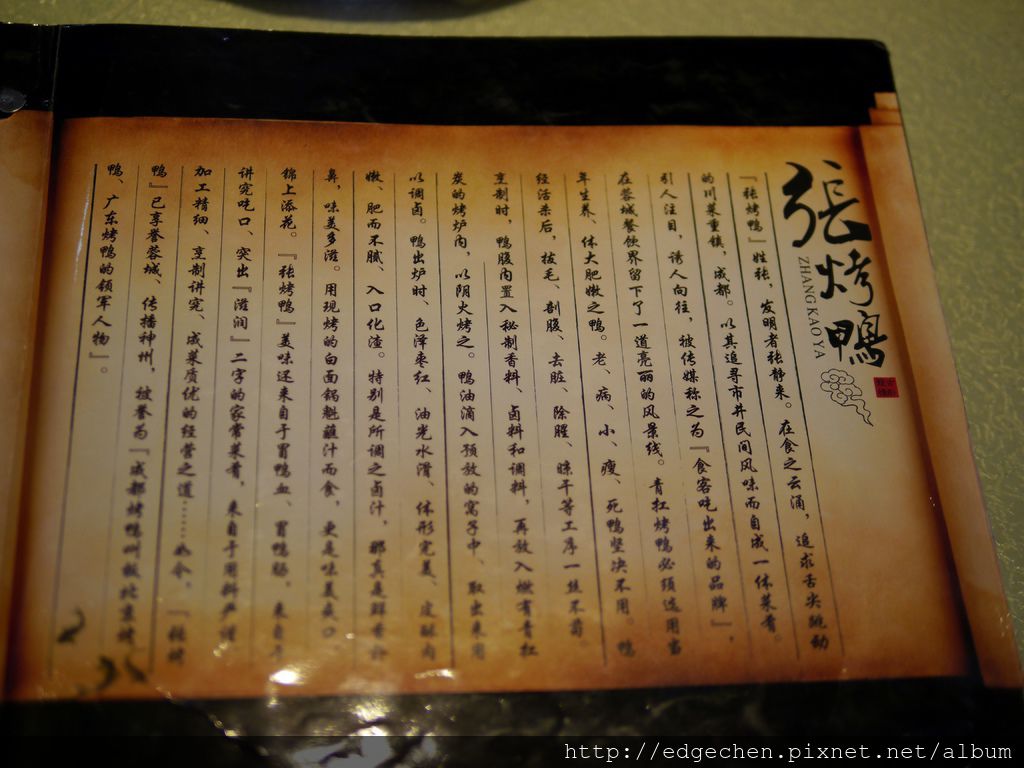 張烤鴨
ZHANG KAO YA
『张烤鸭』姓张，发明者张静来。在食之云涌，追求舌尖跳动
的川菜重镇，成都。以其追寻市井民间风味而自成一体菜肴。
引人注目，诱人向往，被传媒称之为『食客吃出来的品牌』，
在蓉城餐饮界留下了一道亮丽的风景线。青扛烤鸭必须选用当
年生养、体大肥嫩之鸭。老、病、小、瘦、死鸭坚决不用。鸭
经活杀后，拔毛、剖腹、去脏、除腥、晾干等工序一丝不苟。
烹制时，鸭腹内置入秘制香料、卤料和调料，再放入燃有青扛
炭的烤炉内，以阴火烤之。鸭油滴入预放的窝子中、取出来用
以调卤。鸭出炉时、色泽枣红、油光水滑、体形完美、皮酥肉
嫩、肥而不腻、入口化渣。特别是所调之卤汁，那真是鲜香扑
鼻，味美多滋。用现烤的白面锅魁蘸汁而食，更是味美爽口
锦上添花。『张烤鸭』美味还来自于冒鸭血、冒鸭肠，来自于
讲究吃口、突出『滋润』二字的家常菜肴，来自于用料严谨
加工精细、烹制讲究、成菜质优的经营之道……如今，『张烤
鸭』已享誉蓉城、传播神州，被誉为『成都烤鸭叫板北京烤
鸭、广东烤鸭的领军人物』。
http://edgechen.pixnet.net/album